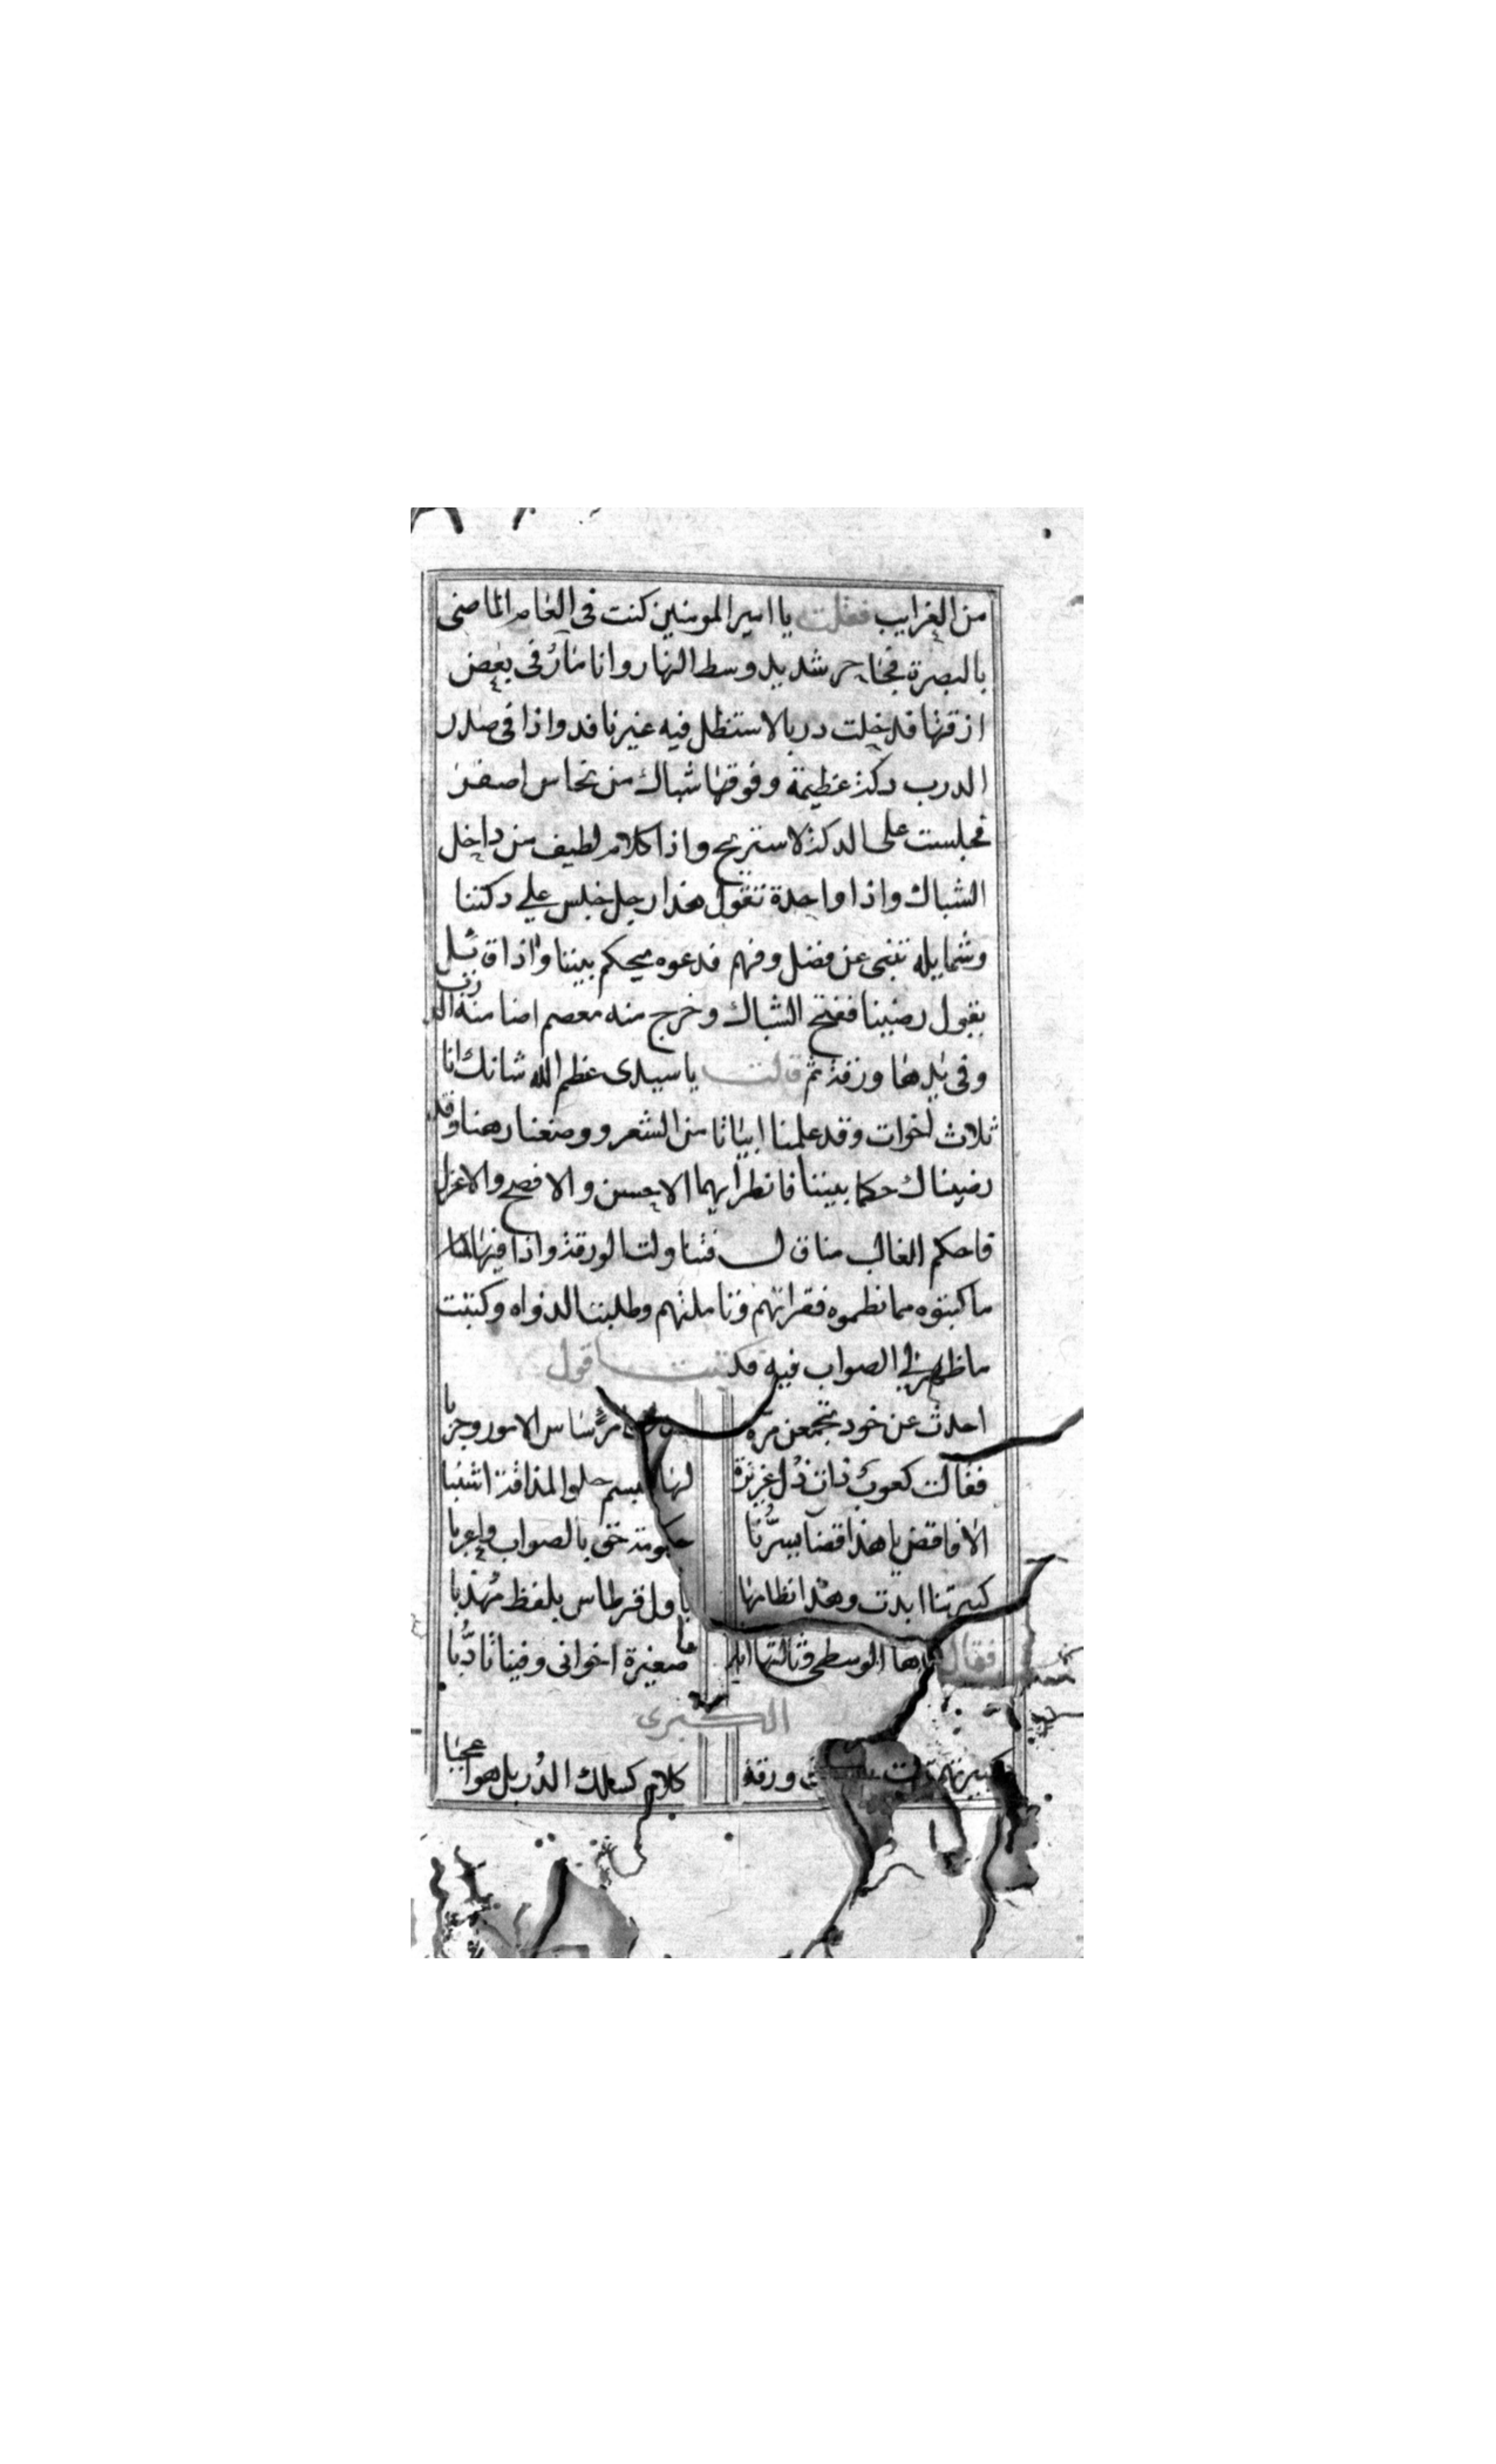 من الغرايب فقلت يا امير المومنين كنت في العام الماضي
بالبصرة فجا حر شديد وسط النهار وانا مار في بعض
ازقتها فدخلت دربا لاستظل فيه غير نافد واذا في صدر
الدرب دكة عظيمة وفوقها شباك من نحاس اصفر
فجلست على الدكة لاستريح واذا كلام لطيف من داخل
الشباك واذا واحدة تقول هذا رجل جلس علي دكتنا
وشمايله تنبي عن فضل وفهم فدعوه يحكم بيننا واذا قايل
يقول رضينا ففتح الشباك وخرج منه معصم اضا منه الزقاق
وفي يدها ورقة ثم قالت يا سيدى عظم الله شانك انا
ثلاث اخوات وقد علمنا ابياتا من الشعر ووضعنا رهنا وقد
رضيناك حكما بيننا فانظر ايهما الاحسن والافصح والاغزل
فاحكم الغالب منا قال فتناولت الورقة واذا فيها
ما كتبوه مما نظموه فقراتهم وتاملتهم وطلبت الدواه وكتبت
ما ظهر لي الصواب فيه فكتبت اقول
احدث عن خود تجمعن مرة ساس الامور وجربا
فقالت كعوب ذات دل غريزة لها مبسم حلو المذاقة اشنبا
الا فاقض يا هذا قضآ يسرنا حكومة حق بالصواب واعربا
كبيرتنا ابدت وهذا نظامها باول قرطاس بلفظ مهذبا
فقال الوسطي وثالثها صغيرة اخواتي وفينا تادبا
الكبرى
كبيرتهم ورقة كلام كسلك الدر بل هو اعجبا